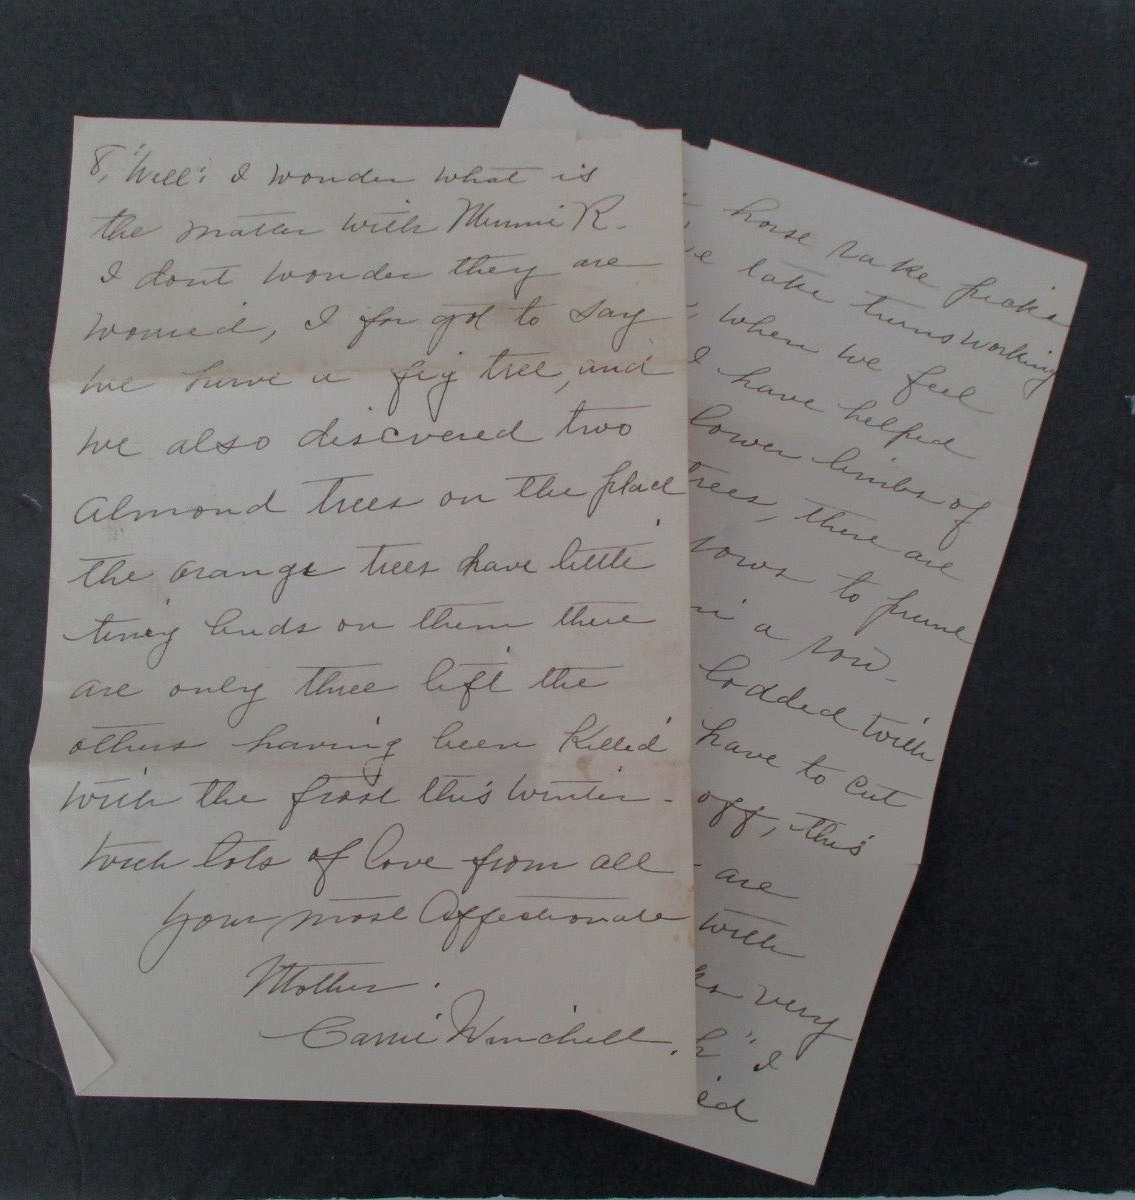 8, "Well", I wonder what is
the matter with Minnie R.
I dont wonder they are
worried, I for got to say
we have a fig tree, and
we also discvered two
almond trees on the place
the orange trees have little
tiney buds on them there
are only three left the
others having been killed
with the frost this winter -
with lots of love from all
your most affectionate
Mother.
Carrie Winchell.
horse rake picks
take turns working
when we feel
I have helped
lower limbs of
trees, there are
rows to prune
in a row -
lodded with
have to cut
off, this
are
with
very
" I